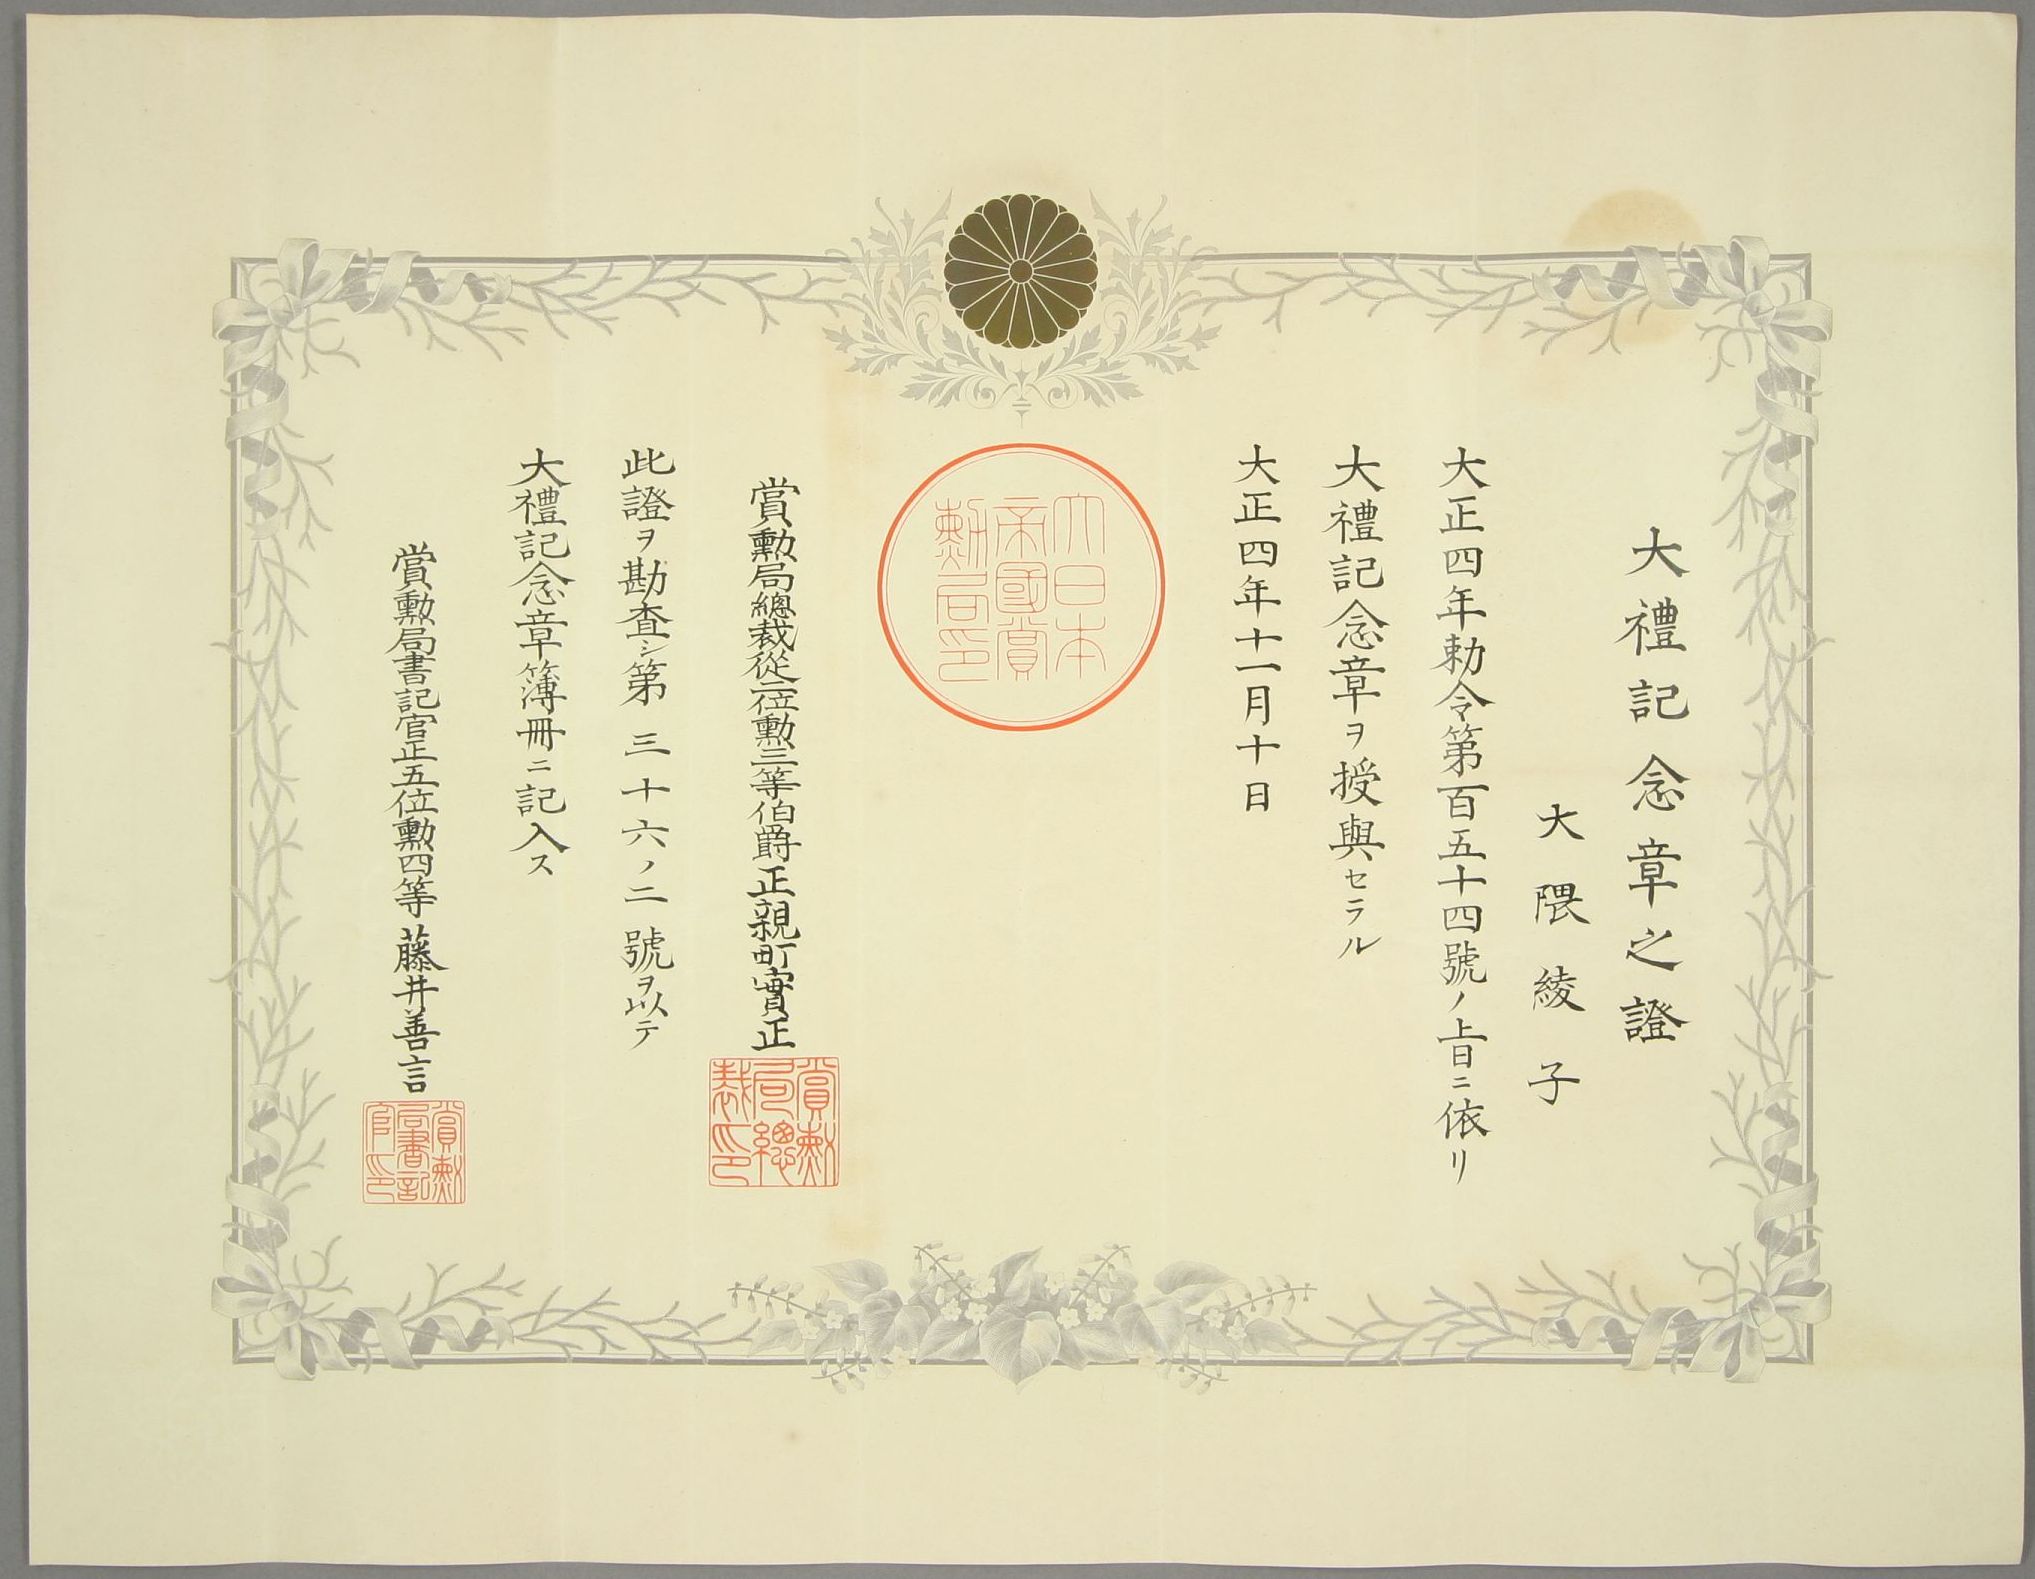 大禮記念章之證
大隈綾子
大正四年勅令第百五十四號ノ上旨ニ依リ
大禮記念章ヲ授與セラル
大正四年十一月十日
大日本
帝國賞
勲局印
賞勲局總裁從二位勲三等伯爵正親町實正
賞勲
局總
裁印
此證ヲ勘査シ第三十六ノ二號ヲ以テ
大禮記念章簿冊ニ記入ス
賞勲局書記官正五位勲四等藤井善言
賞勲
局書記
官印